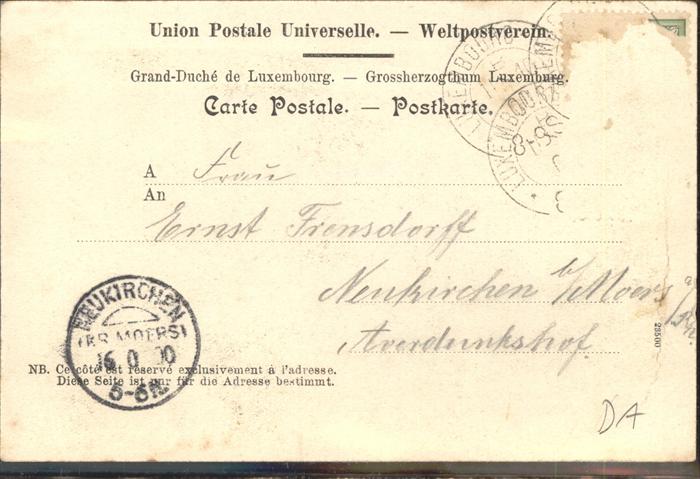 Union Postale Universelle. — Weltpostverein.
Grand-Duché de Luxembourg. — Grossherzogthum Luxemburg.
Carte Postale. — Postkarte.
LUXEMBOURG
LUXEMBOURG
8-9S
A Frau
An
Ernst Frensdorff
Neukirchen b/Moers
Averdunkshof
NEUKIRCHEN
(KR. MOERS)
5-6N.
NB. Ce côté est réservé exclusivement à l'adresse.
Diese Seite ist nur für die Adresse bestimmt.
28500
DA